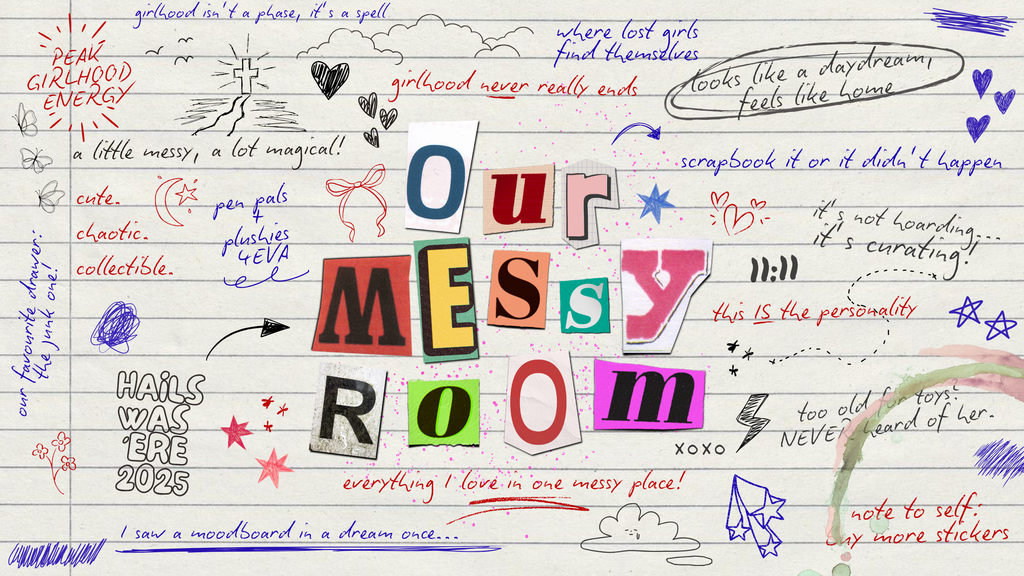 girlhood isn't a phase, it's a spell
PEAK
GIRLHOOD
ENERGY
where lost girls
find themselves
girlhood never really ends
looks like a daydream,
feels like home
a little messy, a lot magical!
scrapbook it or it didn't happen
cute.
chaotic.
collectible.
pen pals
+
plushies
4EVA
it's not hoarding...
it's curating!
11:11
this IS the personality
our favourite drawer:
the junk one!
Our
MESSy
Room
HAiLS
WAS
'ERE
2025
too old for toys?
NEVER heard of her.
xoxo
everything I love in one messy place!
I saw a moodboard in a dream once...
note to self:
buy more stickers